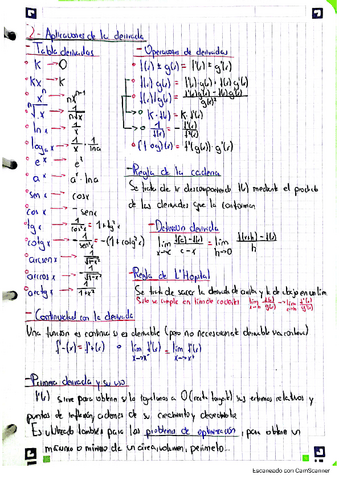 2- Aplicaciones de la derivada
- Tabla derivadas
K → 0
Kx → K
xⁿ → nxⁿ⁻¹
ⁿ√x → 1/n√x
ln x → 1/x
logₐ x → 1/x · 1/lna
eˣ → eˣ
aˣ → aˣ · lna
sen x → cosx
cos x → - senx
tg x → 1/cos²x = 1+tg²x
cotg x → -1/sen²x = -(1+cotg²x)
arcsenx → 1/√1-x²
arccosx → -1/√1-x²
arctgx → 1/1+x²
- Operaciones de derivadas
f(x) ± g(x) = f'(x) ± g'(x)
f(x)·g(x) = f'(x)·g(x) + f(x)·g'(x)
f(x)/g(x) = f'(x)g(x) - f(x)g'(x) / g(x)²
K·f(x) = K·f'(x)
1/f(x) = -f'(x)/f²(x)
(f∘g)(x) = f'(g(x))·g'(x)
- Regla de la cadena
Se trata de ir descomponiendo f(x) mediante el producto
de las derivadas que la conforman
- Definición derivada
lim = lim
h→0
- Regla de L'Hopital
Se trata de sacar la derivada de arriba y la de abajo en un lim
Solo se emplea en lim de cocientes lim f(x)/g(x) → lim f'(x)/g'(x)
- Continuidad con la derivada
Una función es continua si es derivable (pero no necesariamente derivable va continua)
f'-(x) = f'+(x) o lim f'(x) = lim f'(x)
- Primera derivada y su uso
f'(x) sirve para obtener si la igualamos a 0 (recta tangente) sus extremos relativos y
puntos de inflexión, además de su crecimiento y decrecimiento
Es utilizado también para los problemas de optimización, para obtener un
máximo o mínimo de un área, volumen, perímetro...
Escaneado con CamScanner